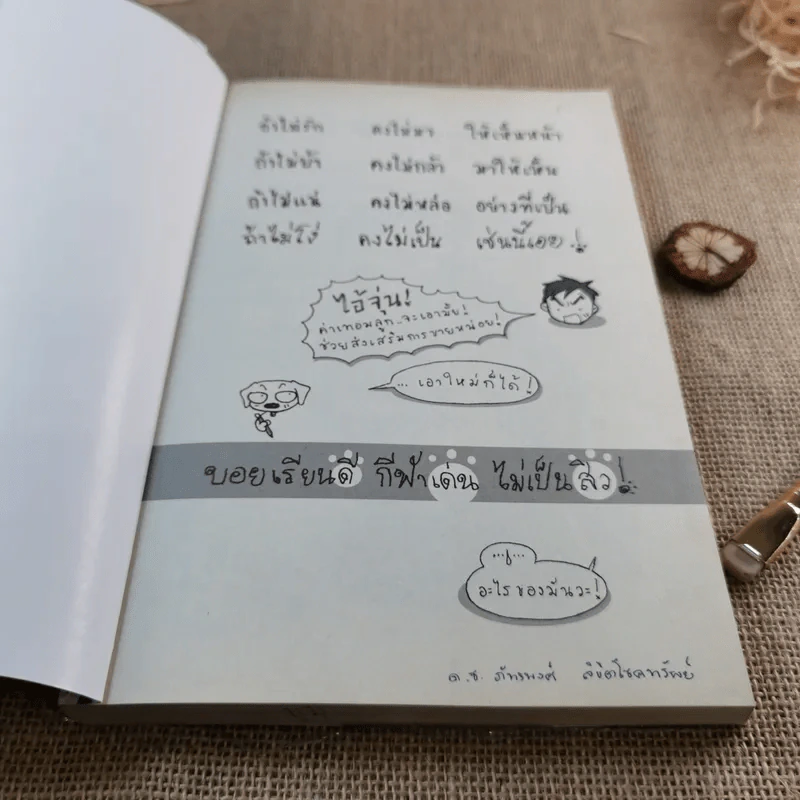 ถ้าไม่รัก คงไม่มา ให้เห็นหน้า
ถ้าไม่บ้า คงไม่กล้า มาให้เห็น
ถ้าไม่แน่ คงไม่หล่อ อย่างที่เป็น
ถ้าไม่โง่ คงไม่เป็น เช่นนี้เอย!
ไอ้จุ่น!
ค่าเทอมลูก..จะเอามั้ย!
ช่วยส่งเสริมการขายหน่อย!
... เอาใหม่ก็ได้!
บอยเรียนดี กีฬาเด่น ไม่เป็นสิว!
อะไรของมันวะ!
ด.ช. ภัทรพงศ์ ลิขิตโชคทรัพย์